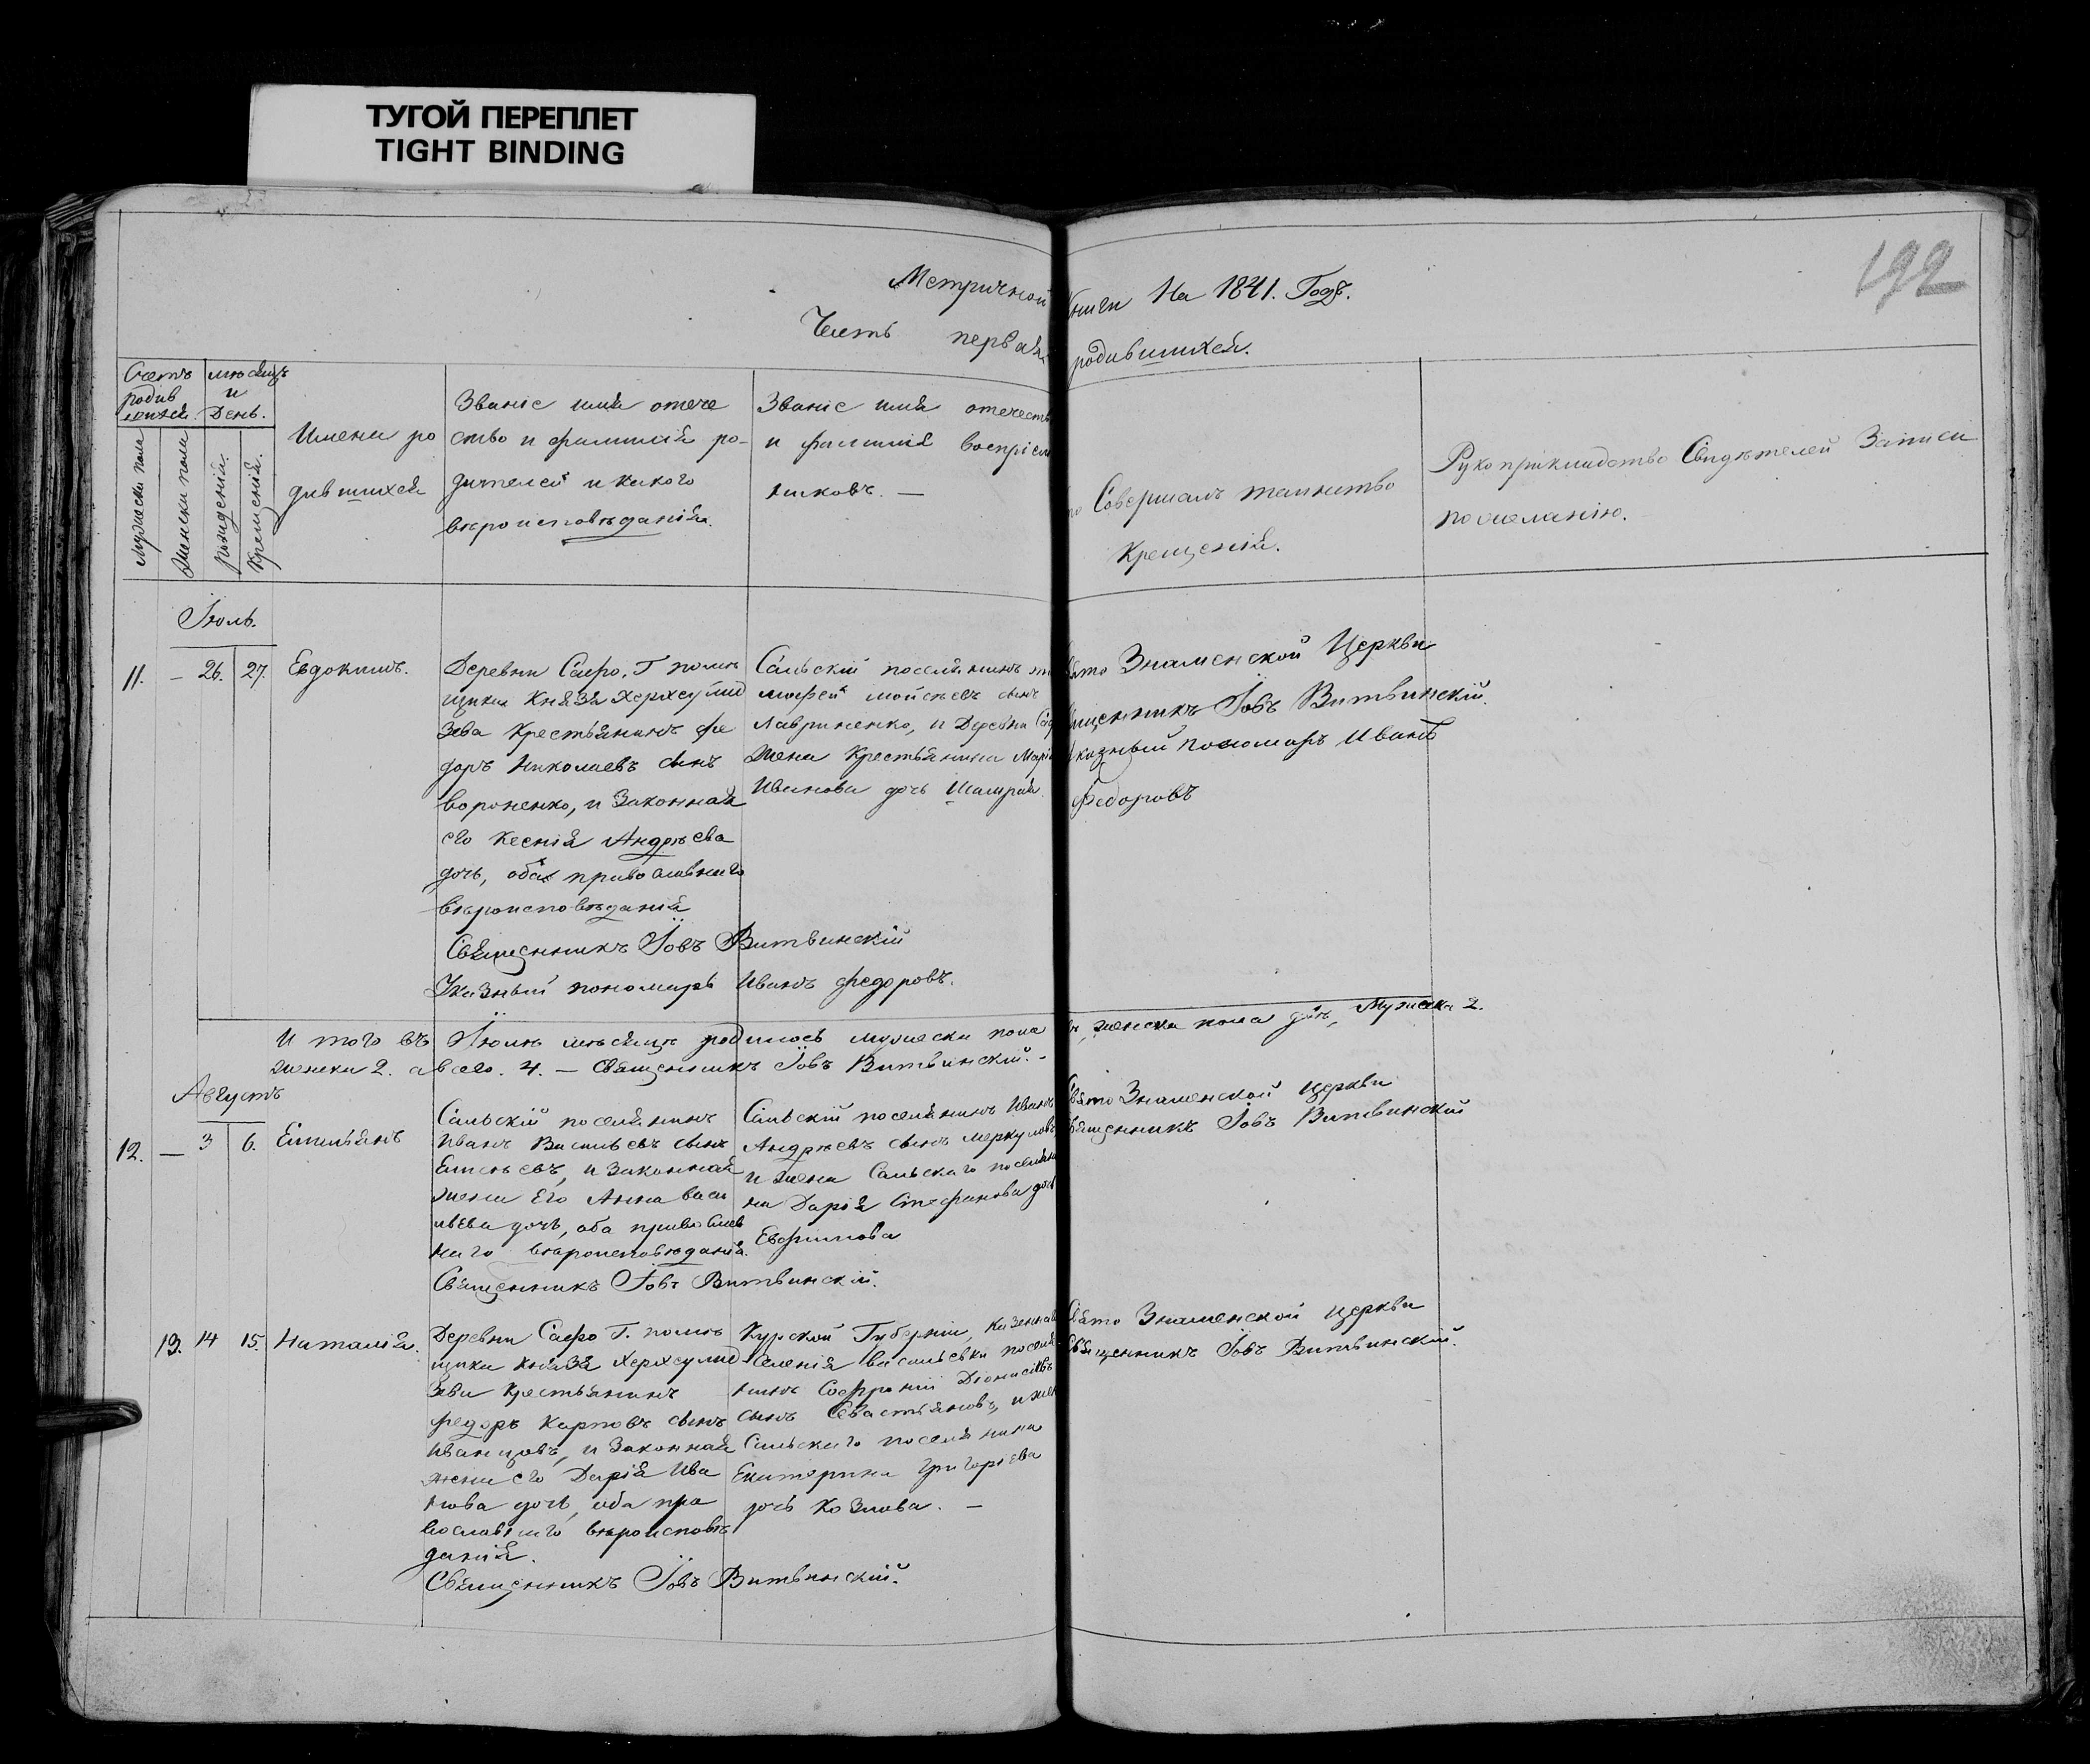 ТУГОЙ ПЕРЕПЛЕТ
TIGHT BINDING
192
Метричной Книги На 1841. Годъ.
Часть первая родившихся.
Счетъ родив шихся.
мѣсяцъ и День.
Мужеска пола
Женска пола
Рожденія.
Крещенія.
Имена ро
дившихся
Званіе имя отече
ство и фамилія ро-
дителей и какого
вѣроисповѣданія.
Званіе имя отечест
и фамилія воспріем
никовъ. —
Совершалъ таинство
Крещенія.
Рукоприкладство Свидѣтелей Записи
по желанію.
Іюль.
11. — 26. 27. Евдокимъ.
Деревни Сафо, Г помѣ
щика Князя Херхеулид
зева Крестьянинъ Фе
доръ Николаевъ сынъ
Вороненко, и Законная
его Ксенія Андреева
дочь, оба православнаго
вѣроисповѣданія
Священникъ Іовъ Витвинскій
Указный пономарь Иванъ Федоровъ.
Сальскій поселянинъ ти
мофей мойсѣевъ сынъ
Лавриненко, и Деревни Саф
Жена Крестьянина Марі
Иванова дочь Шамрай.
Знаменской Церкви
щенникъ Іовъ Витвинскій.
казный пономарь Иванъ
Федоровъ
И того въ Іюлѣ мѣсяцѣ родилось мужеска пола женска пола Мужеска 2.
женска 2. а всего. 4. — Священникъ Іовъ Витвинскій. -
Августъ
12. — 3 6. Емильянъ
Сальскій поселянинъ
Иванъ Васильевъ сынъ
Законная
жена Его Анна Васи
льева дочь, оба православ
наго вѣроисповѣданія.
Священникъ Іовъ Витвинскій.
Сальскій поселянинъ Иванъ
Андреевъ сынъ Меркулов
и жена Сальскаго поселяни
на Дарія Стефанова дочь
Евфимова
Знаменской церкви
щенникъ Іовъ Витвинскій
13. 14 15. Наталія.
Деревни Сафо Г. помѣ
щика Князя Херхеулид
зева Крестьянинъ
Федоръ Карповъ сынъ
Иванцовъ, и Законная
жена его Дарія Ива
нова дочь, оба пра
вославнаго вѣроисповѣ
данія.
Священникъ Іовъ Витвинскій.
Курской Губерніи, Казеннаг
селенія Васильевки поселя
нинъ Софроній Діонисіевъ
сынъ Севастьяновъ, и жен
Сальскаго поселянина
Екатерина Григоріева
дочь Козлова. —
Знаменской церкви
Священникъ Іовъ Витвинскій.